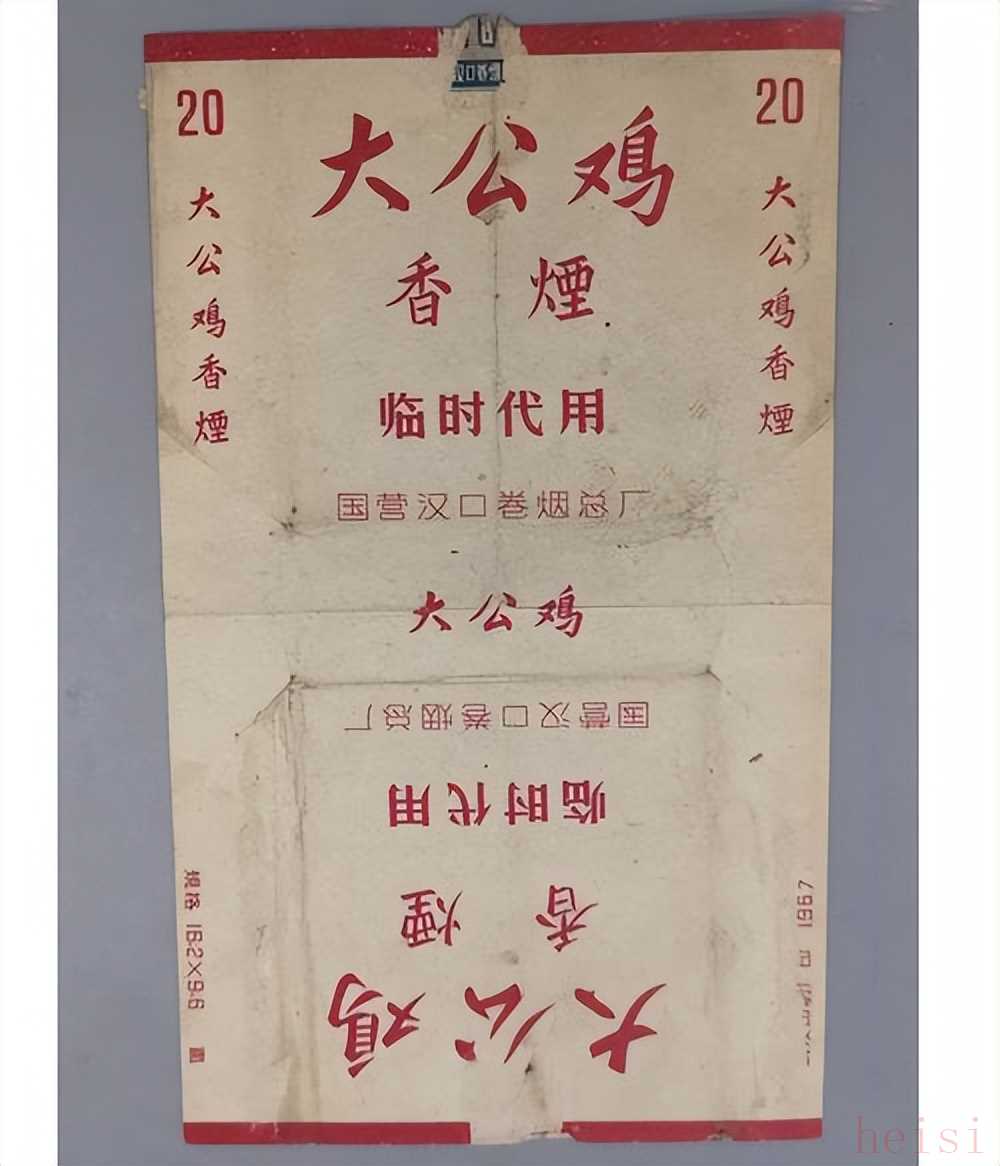 20
大公鸡
20
大公鸡香煙
香煙
大公鸡香煙
临时代用
国营汉口卷烟总厂
大公鸡
国营汉口卷烟总厂
临时代用
香煙
大公鸡
規格 16·2×9·6
1967
heisi